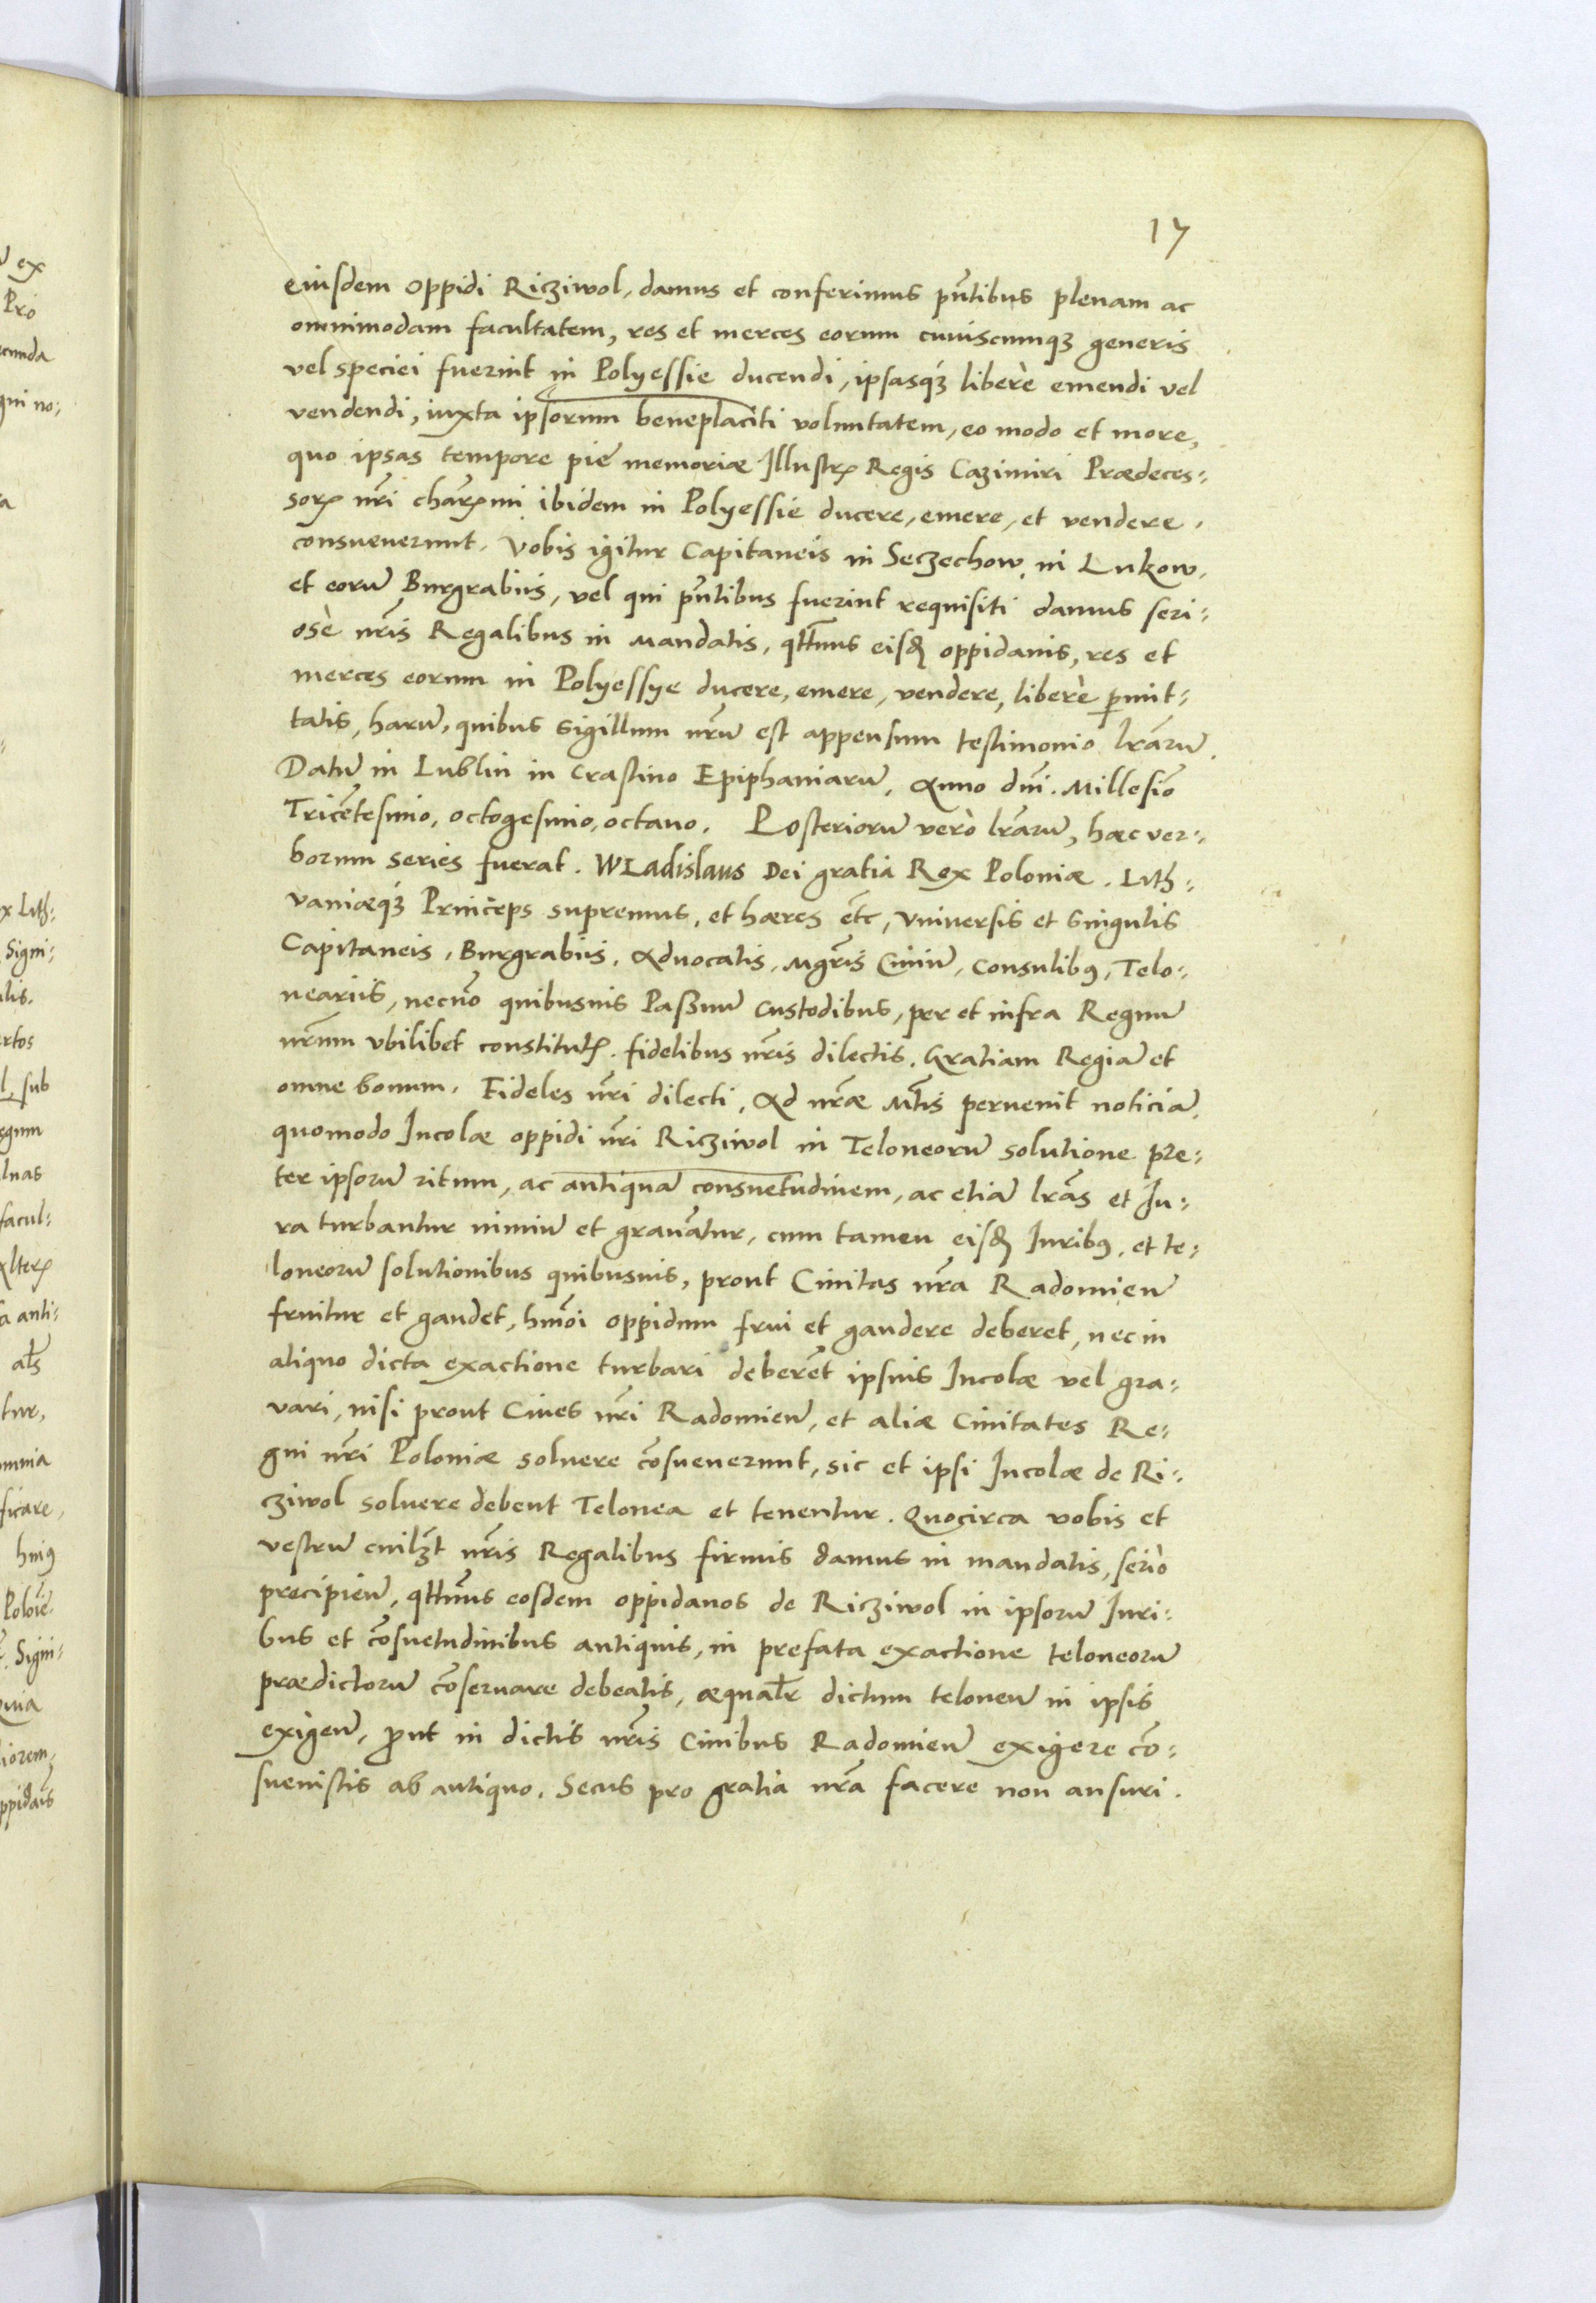 17
eiusdem oppidi Ricziwol, damus et conferimus pñtibus plenam ac
omnimodam facultatem, res et merces eorum cuiuscumqꝫ generis
vel speciei fuerint in Polyessie ducendi, ipsasqꝫ liberè emendi vel
vendendi, iuxta ipsorum beneplaciti voluntatem, eo modo et more,
quo ipsas tempore piè memoriæ Illustrꝭ Regis Cazimiri Prædeces-
sorꝭ nr̃i charꝭmi ibidem in Polyessie ducere, emere, et vendere.
consueuerunt. Vobis igitur Capitaneis in Seczechow, in Lukow,
et eorũ Burgrabiis, vel qui pñtibus fuerint requisiti damus seri-
osè nr̃is Regalibus in mandatis, qttñus eisdꝭ oppidanis, res et
merces eorum in Polyessye ducere, emere, vendere, liberè ꝑmit-
tatis, harũ, quibus sigillum nr̃ũ est appensum testimonio lr̃arũ.
Datũ in Lublin in crastino Epiphaniarũ, Anno dñi. Millesiõ
Tricẽtesimo, octogesimo, octauo. Posteriorũ verò lr̃arũ, hæc ver-
borum series fuerat. WLadislaus Dei gratia Rex Poloniæ. Lith-
vaniæqꝫ Princeps supremus, et hæres etc̃, Vniuersis et singulis
Capitaneis, Burgrabiis, Aduocatis, Mgr̃is Ciuiũ, Consulibꝰ, Telo-
neariis, necnõ quibusuis Passuũ custodibus, per et infra Regnũ
nr̃um vbilibet constitutꝭ. fidelibus nr̃is dilectis. Gratiam Regiã et
omne bonum. Fideles nr̃i dilecti, Ad nr̃æ Mt̃is peruenit noticiã,
quomodo Incolæ oppidi nr̃i Ricziwol in Teloneorũ solutione pre-
ter ipsorũ ritum, ac antiquã consuetudinem, ac etiã lr̃as et Iu-
ra turbantur nimiũ et grauãtur, cum tamen eisdꝭ Iuribꝰ, et te-
loneorũ solutionibus quibusuis, prout Ciuitas nr̃a Radomieñ
fruitur et gaudet, hmõi oppidum frui et gaudere deberet, nec in
aliquo dicta exactione turbari deberẽt ipsius Incolæ vel gra-
vari, nisi prout Ciues nr̃i Radomieñ, et aliæ Ciuitates Re-
gni nr̃i Poloniæ soluere cõsueuerunt, sic et ipsi Incolæ de Ri-
cziwol soluere debent Telonea et tenentur. Quocirca vobis et
vestrũ cuilꝫt nr̃is Regalibus firmis damus in mandatis, seriò
precipieñ, qttñus eosdem oppidanos de Ricziwol in ipsorũ Iuri-
bus et cõsuetudinibus antiquis, in prefata exactione teloneorũ
prædictorũ cõseruare debeatis, æqualr̃ dictum teloneũ in ipsis
exigeñ, ꝓut in dictis nr̃is Ciuibus Radomieñ exigere cõ-
sueuistis ab antiquo. Secus pro gratia nr̃a facere non ausuri.